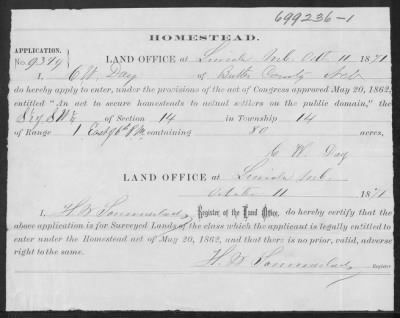 699236-1
HOMESTEAD.
APPLICATION.
No. 9349 LAND OFFICE at Lincoln Neb. Oct. 11 1871
I, C. W. Day of Butler County Neb
do hereby apply to enter, under the provisions of the act of Congress approved May 20, 1862,
entitled "An act to secure homesteads to actual settlers on the public domain," the
of Section 14 in Township 14
of Range 1 East 6th P M containing 80 acres.
C. W. Day
LAND OFFICE at Lincoln Neb.
October 11 1871
I, H. W. Register of the Land Office, do hereby certify that the
above application is for Surveyed Lands of the class which the applicant is legally entitled to
enter under the Homestead act of May 20, 1862, and that there is no prior, valid, adverse
right to the same.
H. W. Register